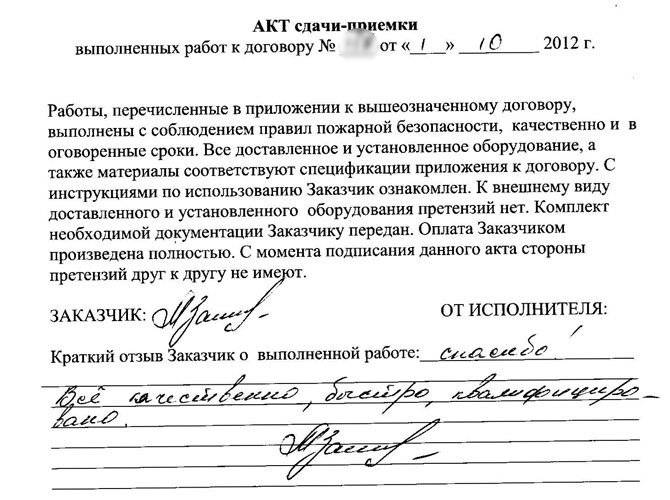 АКТ сдачи-приемки
выполненных работ к договору № от «1» 10 2012 г.
Работы, перечисленные в приложении к вышеозначенному договору,
выполнены с соблюдением правил пожарной безопасности, качественно и в
оговоренные сроки. Все доставленное и установленное оборудование, а
также материалы соответствуют спецификации приложения к договору. С
инструкциями по использованию Заказчик ознакомлен. К внешнему виду
доставленного и установленного оборудования претензий нет. Комплект
необходимой документации Заказчику передан. Оплата Заказчиком
произведена полностью. С момента подписания данного акта стороны
претензий друг к другу не имеют.
ЗАКАЗЧИК: ОТ ИСПОЛНИТЕЛЯ:
Краткий отзыв Заказчик о выполненной работе: спасибо!
Всё качественно, быстро, квалифициро-
вано.